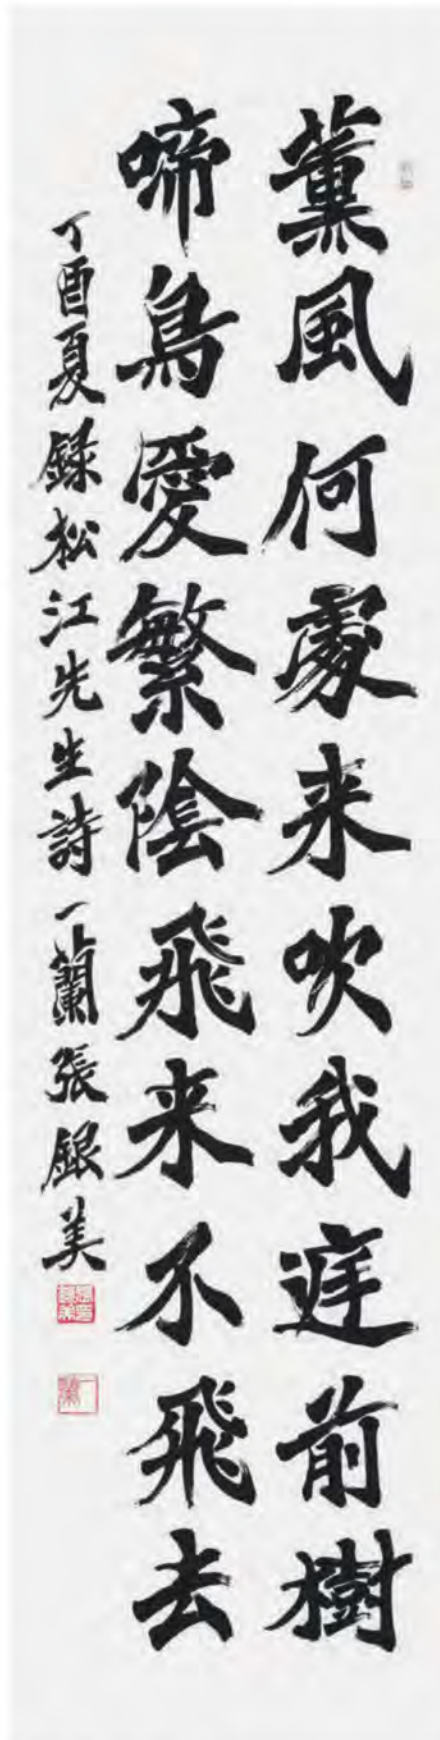 薰風何處来吹我庭前樹
啼鳥愛繁陰飛来不飛去
丁酉夏録松江先生詩一蘭張銀美